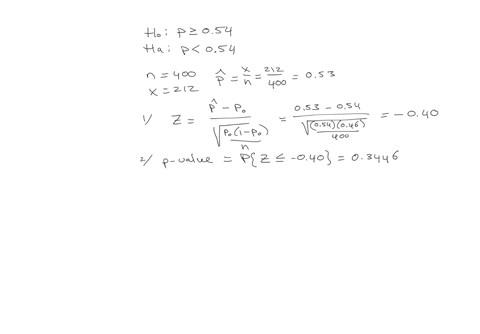 H₀: p ≥ 0.54
Ha: p < 0.54
n = 400   p̂ = x/n = 212/400 = 0.53
x = 212
1/ Z = (p̂ - p₀)/√(p₀(1-p₀)/n) = (0.53 - 0.54)/√((0.54)(0.46)/400) = -0.40
2/ p-value = P{Z ≤ -0.40} = 0.3446